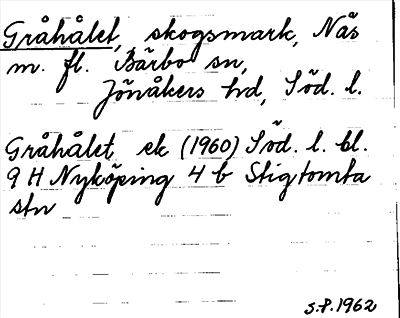 Gråhålet, skogsmark, Näs
m. fl. Bärbo sn,
Jönåkers hd, Söd. l.
Gråhålet ek (1960) Söd. l. bl.
9 H Nyköping 4 b Stigtomta
stn
S.P. 1962